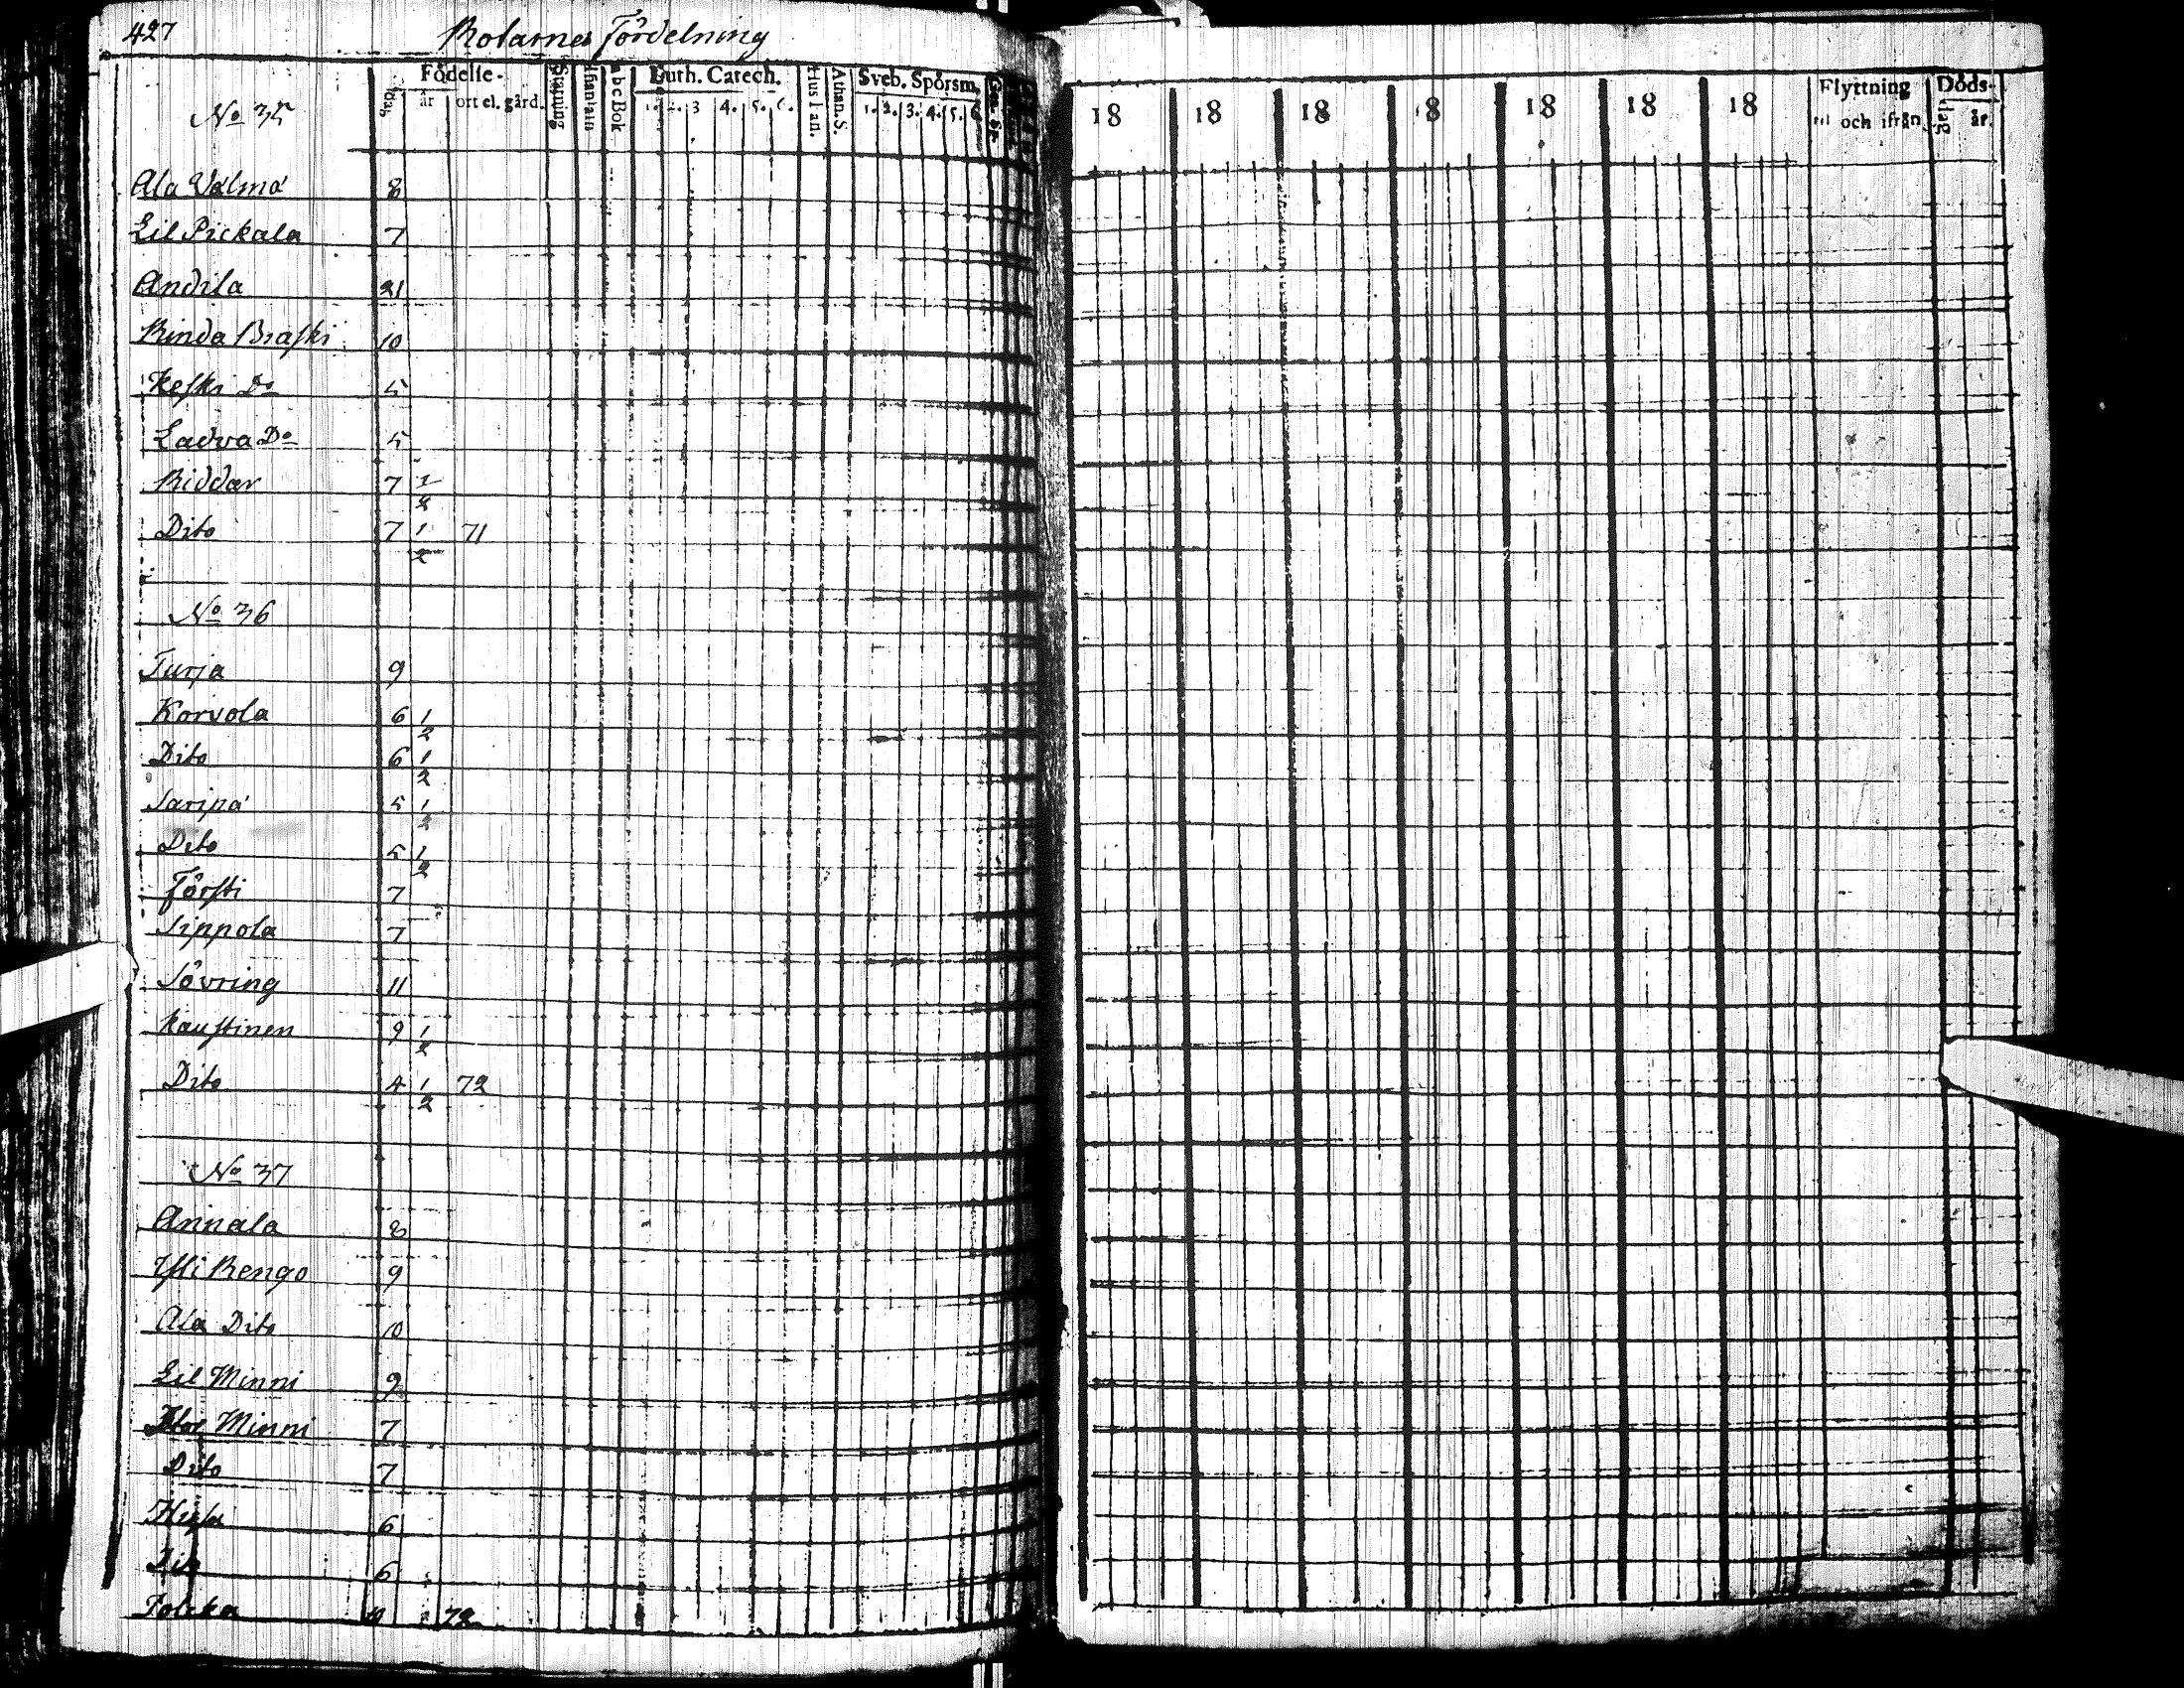 427 Rotarnes Fördelning
Födelse- Luth. Catech. Sveb. Spörsm.
år ort el. gård. abc Bok 1. 2. 3 4. 5. 6. Athan. S. 1. 2. 3. 4. 5. 6
18 18 18 18 18 18 18 Flyttning Döds-
til och ifrån dag år.
No 35
Ala Välmä 8
Lil Pickala 7
Andila 21
Rinda Braski 10
Keski Do 5
Ladva Do 5
Riddar 7 1/2
Dito 7 1/2 71
No 36
Turja 9
Korvola 6 1/2
Dito 6 1/2
Saripä 5 1/2
Dito 5 1/2
Försti 7
Sippola 7
Sövring 11
Kaustinen 9 1/2
Dito 4 1/2 72
No 37
Annala 8
Ysti Rengo 9
Ala Dito 10
Lil Minni 9
Stor Minni 7
Dito 7
6
Dito 6
72